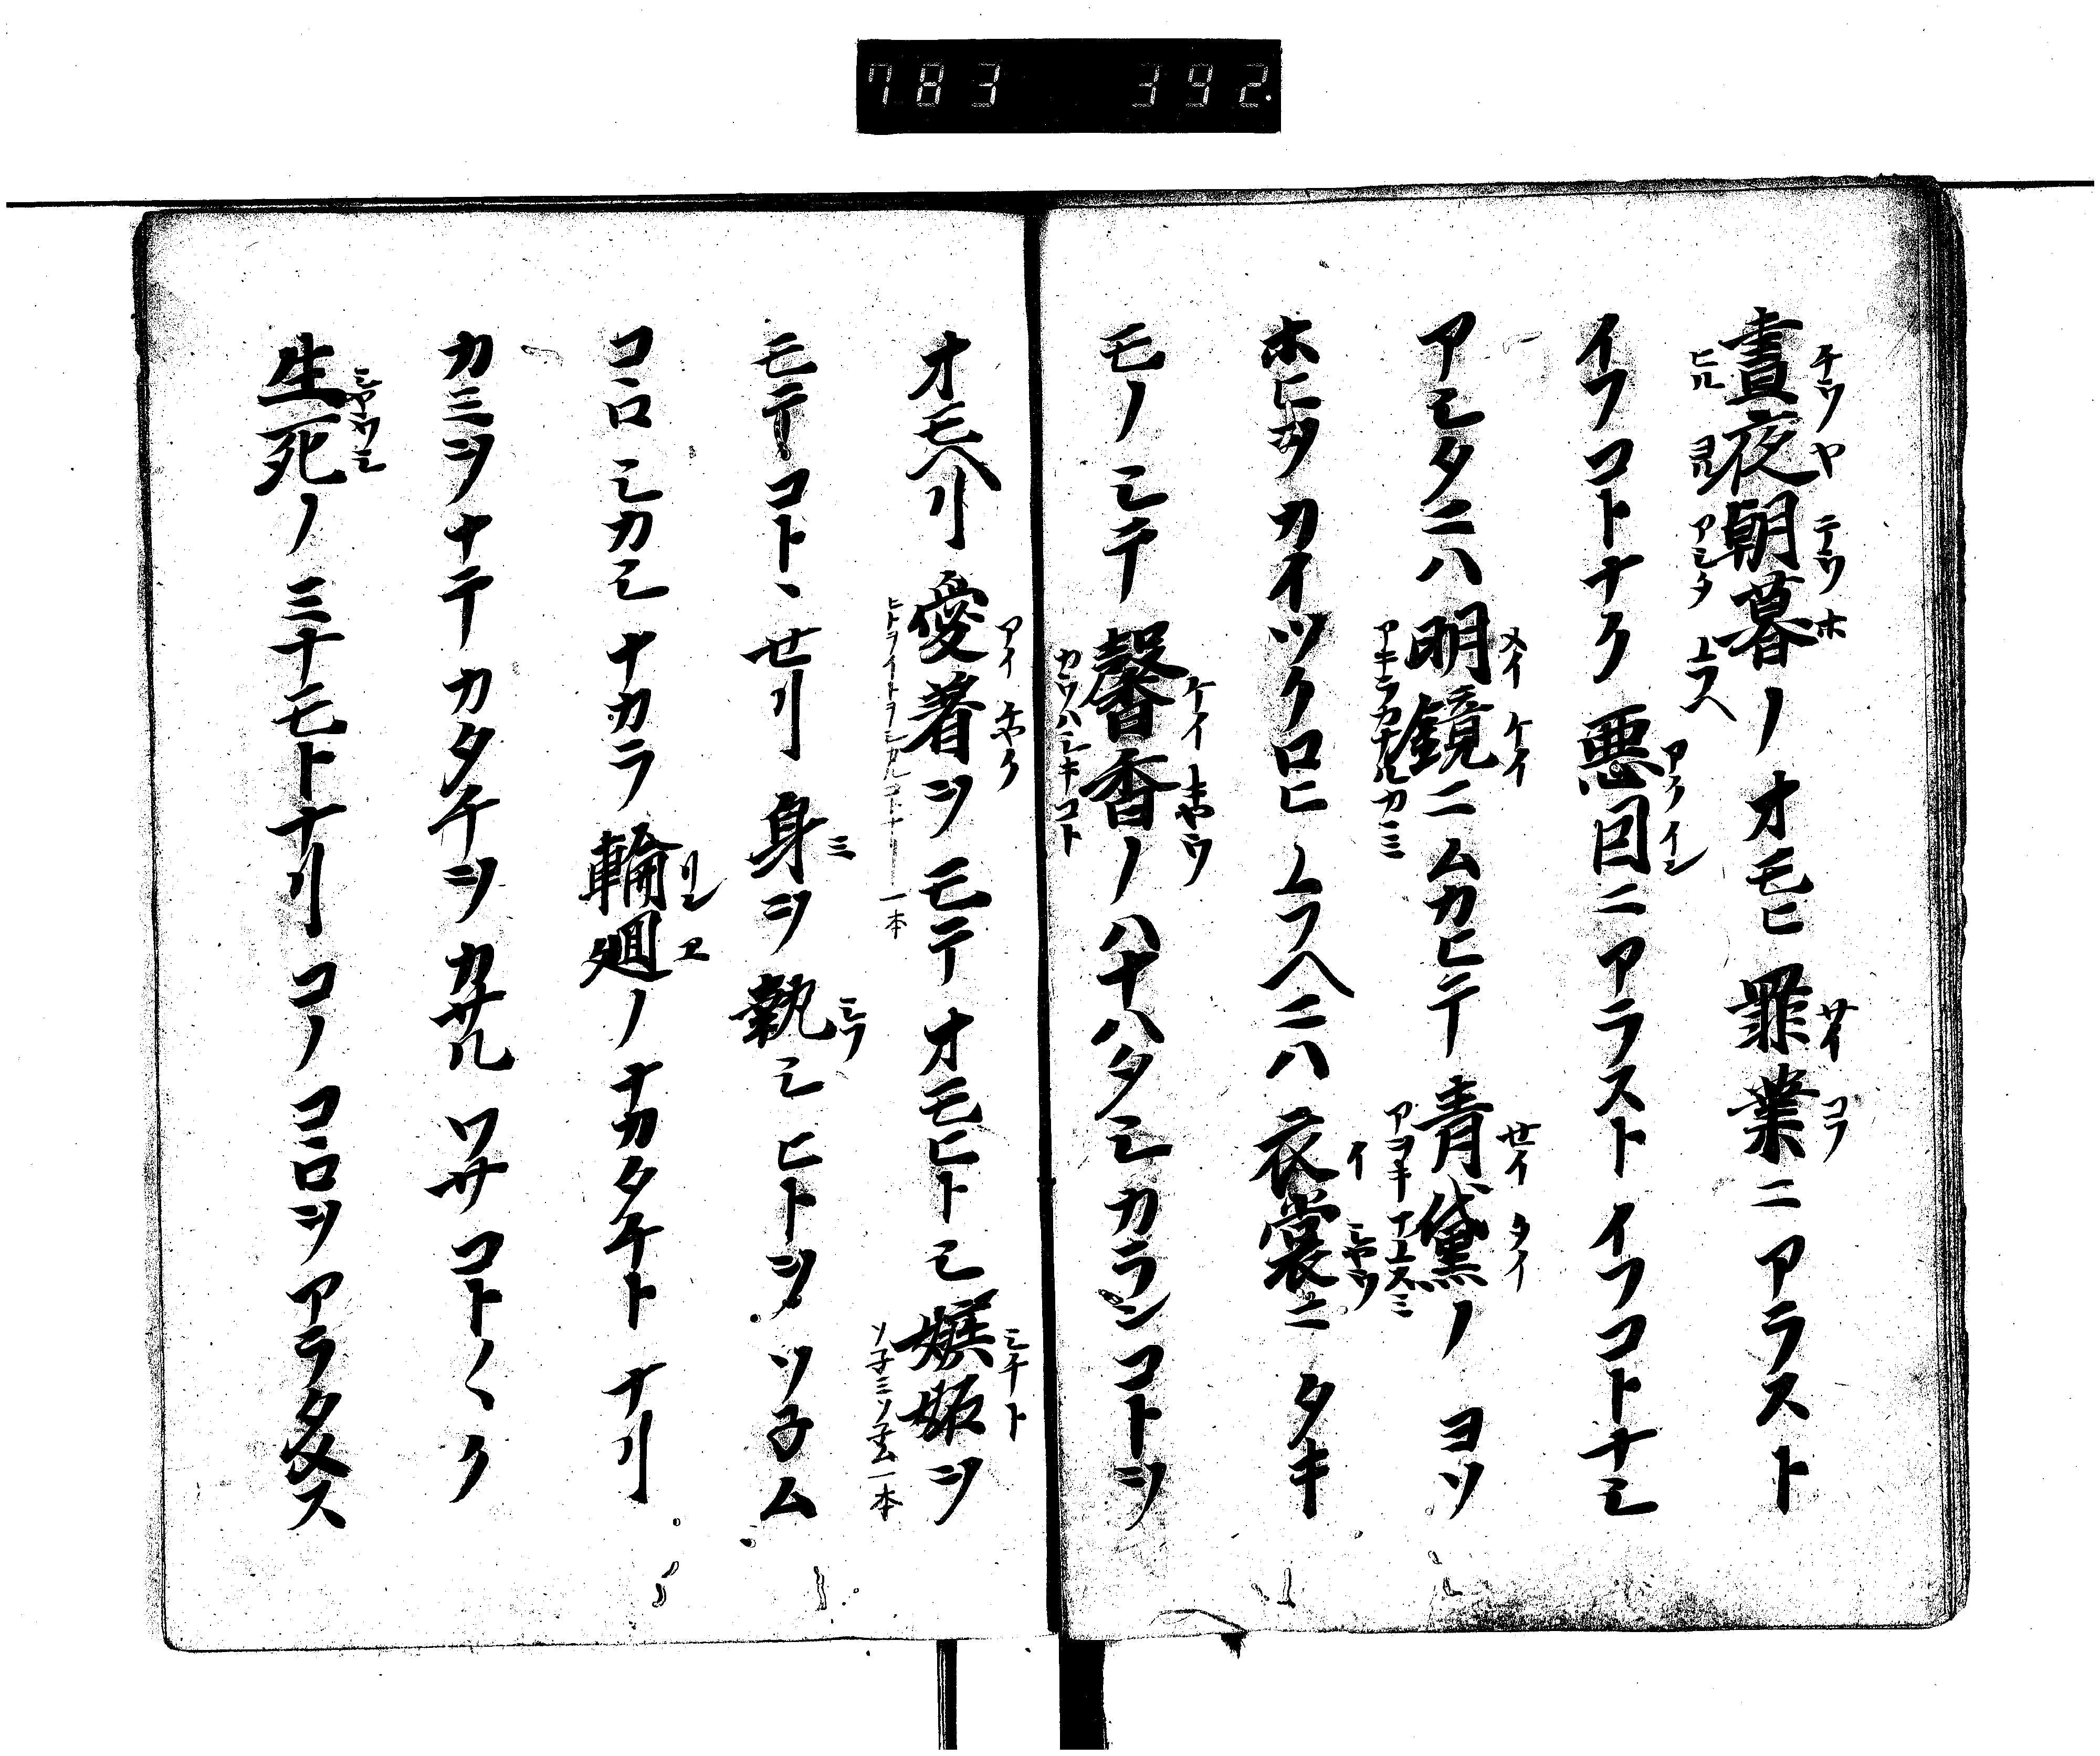 783 392
晝夜朝暮ノオモヒ罪業ニアラスト
イフコトナク悪因ニアラストイフコトナシ
アシタニハ明鏡ニムカヒテ青黛ノヨソ
ホヒヲカイツクロヒユフヘニハ衣裳ニタキ
モノシテ馨香ノハナハタシカランコトヲ
オモヘリ愛着ヲモテオモヒトシ嫉妬ヲ
モテコトヽセリ身ヲ執シヒトヲソネム
コヽロシカシナカラ輪廻ノナカタチトナリ
カミヲナテカタチヲカサルワサコト〱ク
生死ノミナモトナリコノコヽロヲアラタメス